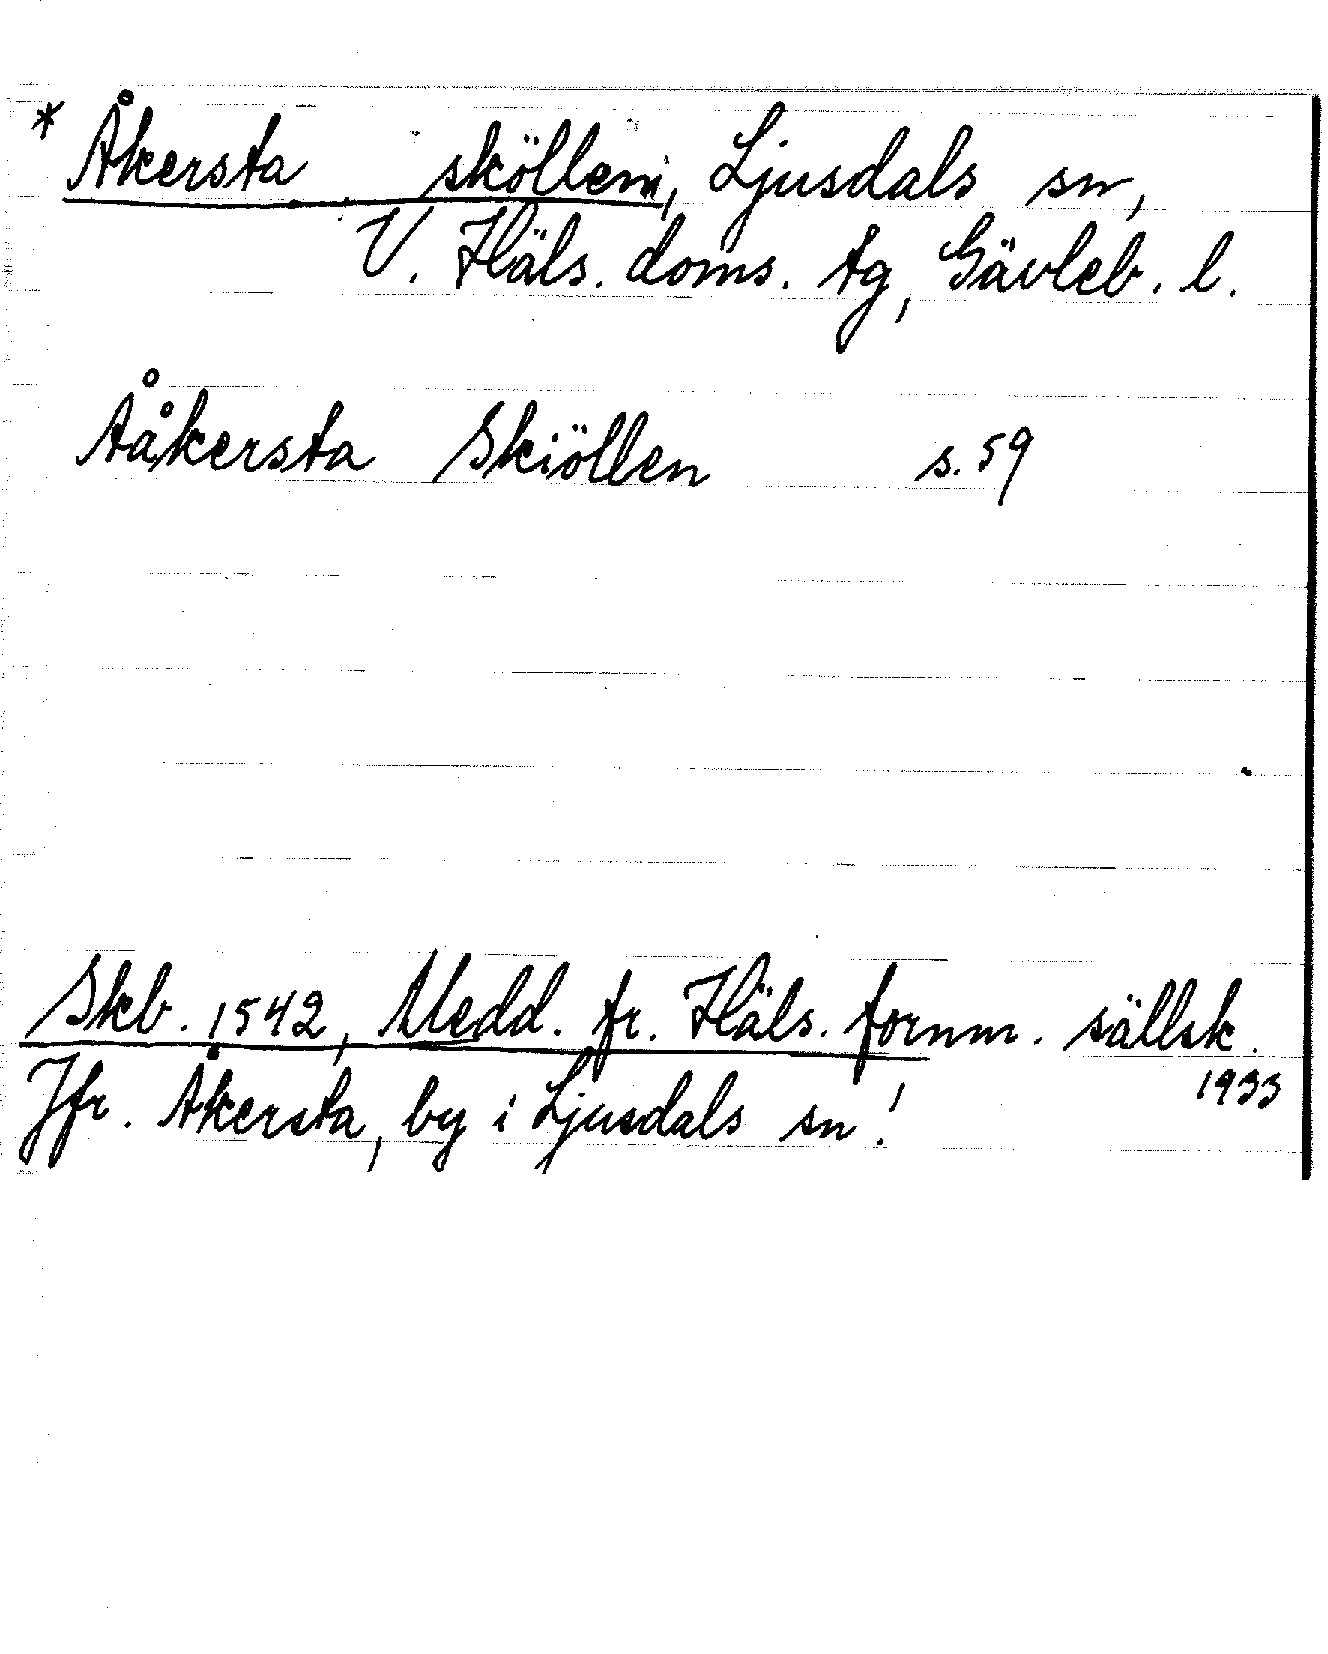 * Åkersta sköllen, Ljusdals sn,
V. Häls. doms. tg, Gävleb. l.
Ååkersta Skiöllen s. 59
Skb. 1542, Medd. fr. Häls. fornm. sällsk.
1933
Jfr. Åkersta, by i Ljusdals sn!